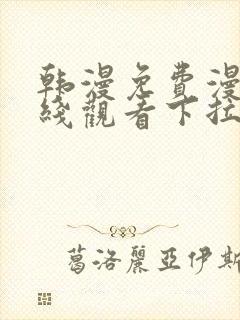 韩漫免費漫
綫觀看下拉
葛洛麗亞伊斯